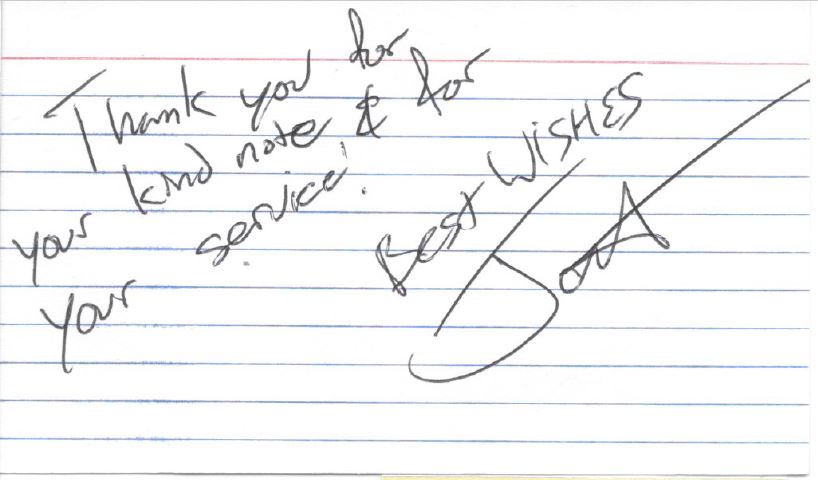 Thank you for
your kind note & for
your service!
Best WiSHES